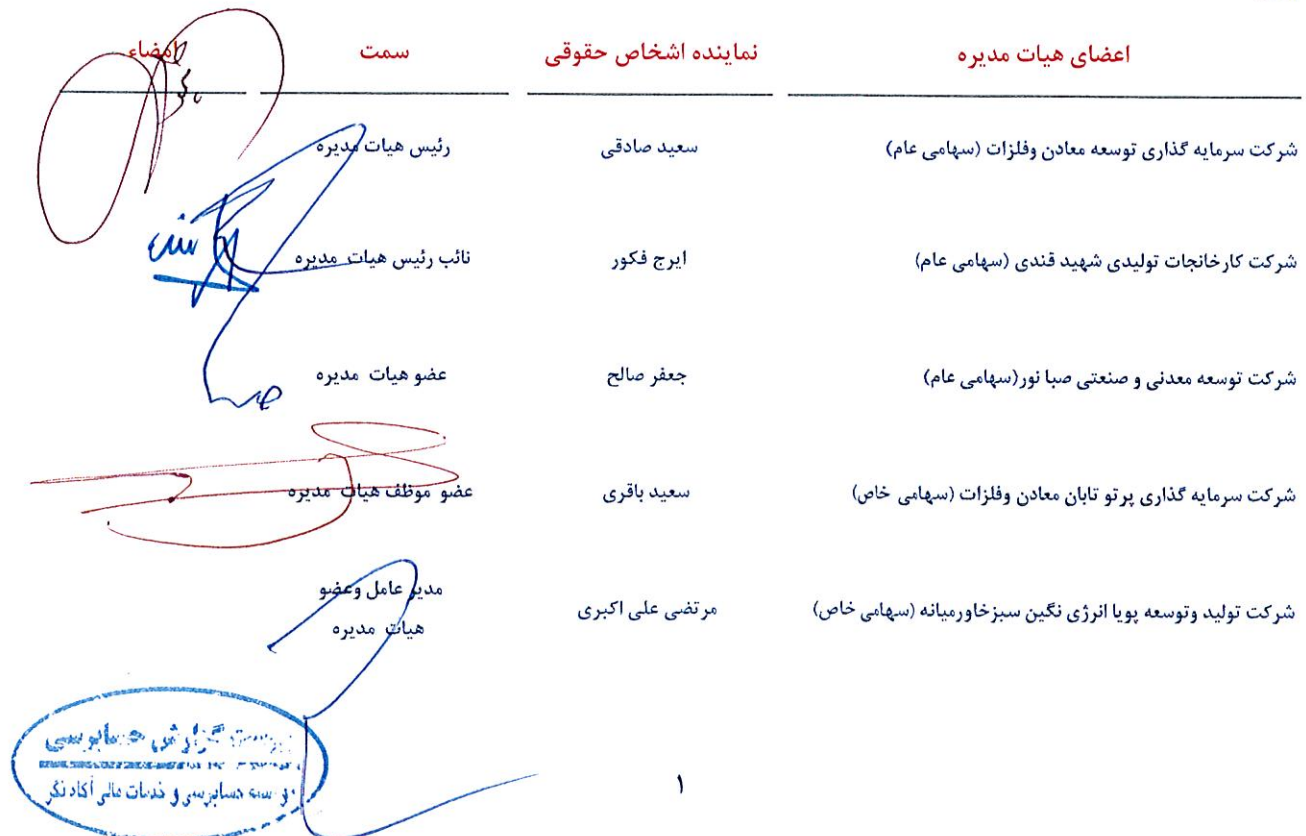 اعضای هیات مدیره نماینده اشخاص حقوقی سمت امضاء
شرکت سرمایه گذاری توسعه معادن وفلزات (سهامی عام) سعید صادقی رئیس هیات مدیره
شرکت کارخانجات تولیدی شهید قندی (سهامی عام) ایرج فکور نائب رئیس هیات مدیره
شرکت توسعه معدنی و صنعتی صبا نور(سهامی عام) جعفر صالح عضو هیات مدیره
شرکت سرمایه گذاری پرتو تابان معادن وفلزات (سهامی خاص) سعید باقری عضو موظف هیات مدیره
شرکت تولید وتوسعه پویا انرژی نگین سبزخاورمیانه (سهامی خاص) مرتضی علی اکبری مدیر عامل وعضو
هیات مدیره
پیوست گزارش حسابرسی
موسسه حسابرسی و خدمات مالی آگاه نگر
۱